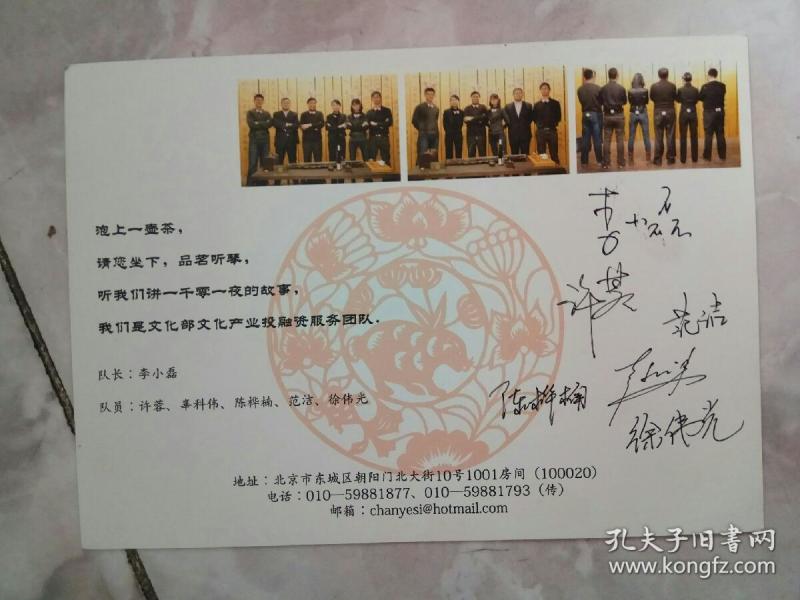 泡上一壶茶，
请您坐下，品茗听琴，
听我们讲一千零一夜的故事，
我们是文化部文化产业投融资服务团队．
队长：李小磊
队员：许蓉、辜科伟、陈桦楠、范洁、徐伟光
李小磊
许蓉
范洁
陈桦楠
徐伟光
地址：北京市东城区朝阳门北大街10号1001房间（100020）
电话：010—59881877、010—59881793（传）
邮箱：chanyesi@hotmail.com
孔夫子旧书网
www.kongfz.com